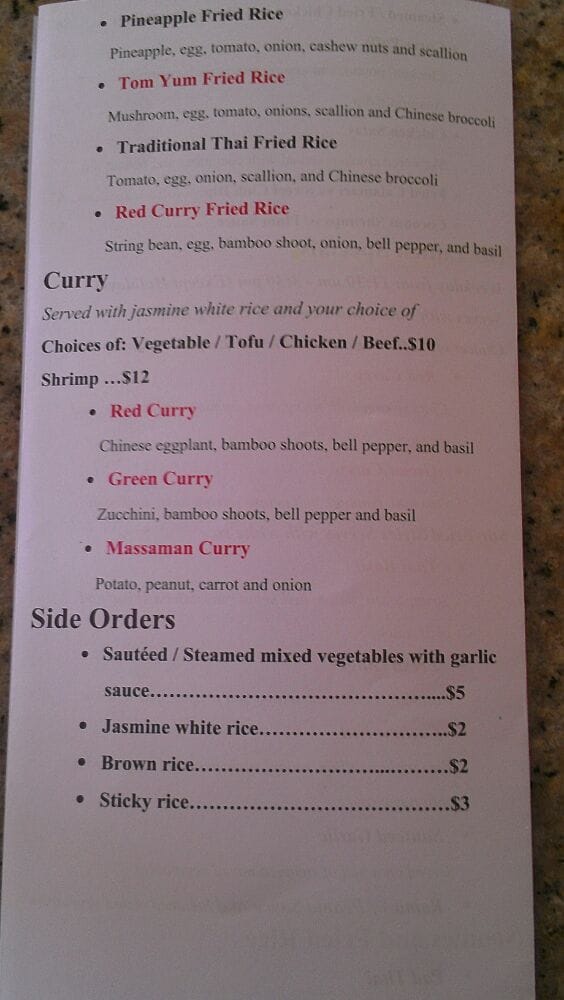 • Pineapple Fried Rice
Pineapple, egg, tomato, onion, cashew nuts and scallion
• Tom Yum Fried Rice
Mushroom, egg, tomato, onions, scallion and Chinese broccoli
• Traditional Thai Fried Rice
Tomato, egg, onion, scallion, and Chinese broccoli
• Red Curry Fried Rice
String bean, egg, bamboo shoot, onion, bell pepper, and basil
Curry
Served with jasmine white rice and your choice of
Choices of: Vegetable / Tofu / Chicken / Beef..$10
Shrimp ...$12
• Red Curry
Chinese eggplant, bamboo shoots, bell pepper, and basil
• Green Curry
Zucchini, bamboo shoots, bell pepper and basil
• Massaman Curry
Potato, peanut, carrot and onion
Side Orders
• Sautéed / Steamed mixed vegetables with garlic
sauce..........................................$5
• Jasmine white rice..............................$2
• Brown rice......................................$2
• Sticky rice.....................................$3